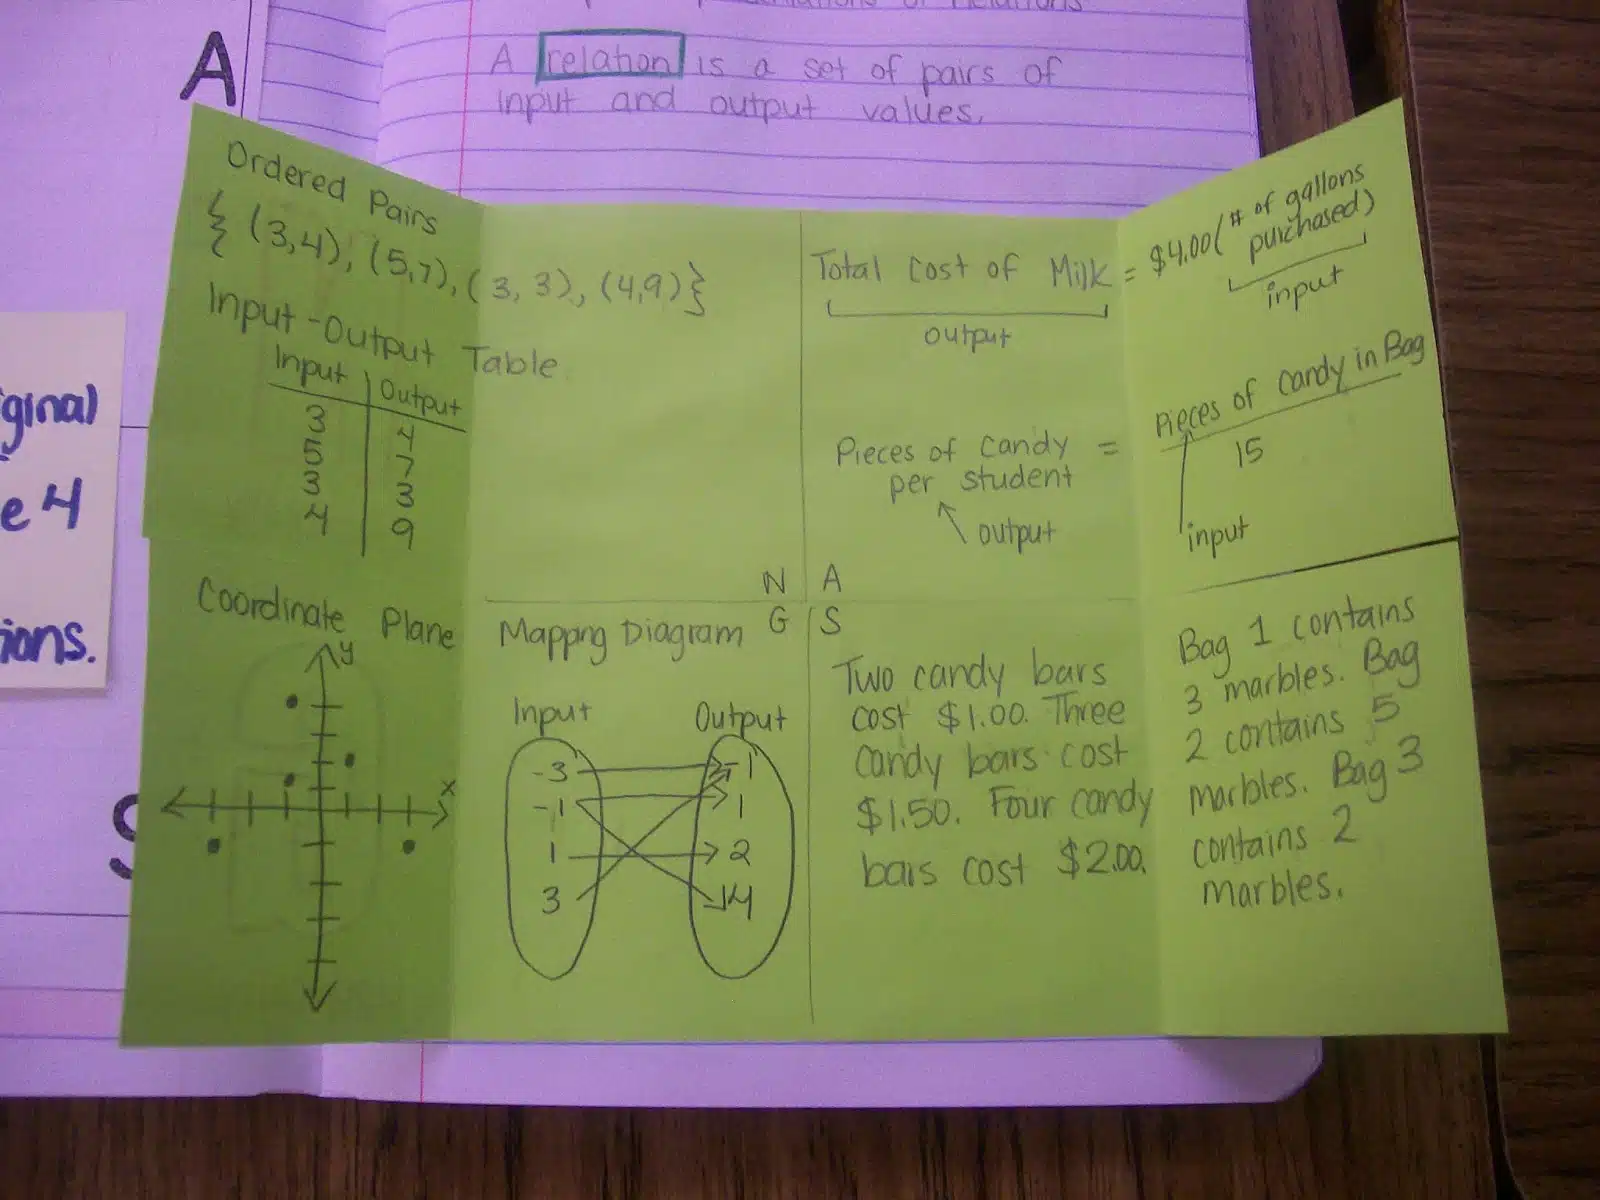 A
A relation is a set of pairs of
input and output values.
ginal
e 4
ions.
Ordered Pairs
{ (3,4), (5,7), (3, 3), (4,9) }
Input-Output Table
Input Output
3 4
5 7
3 3
4 9
N
Total Cost of Milk = $4.00 (# of gallons
purchased)
output
input
Pieces of Candy = Pieces of Candy in Bag
per student 15
output
input
A
Coordinate Plane
y
x
G
Mapping Diagram
Input Output
-3 -1
-1 1
1 2
3 4
S
Two candy bars
cost $1.00. Three
candy bars cost
$1.50. Four candy
bars cost $2.00.
Bag 1 contains
3 marbles. Bag
2 contains 5
marbles. Bag 3
contains 2
marbles.